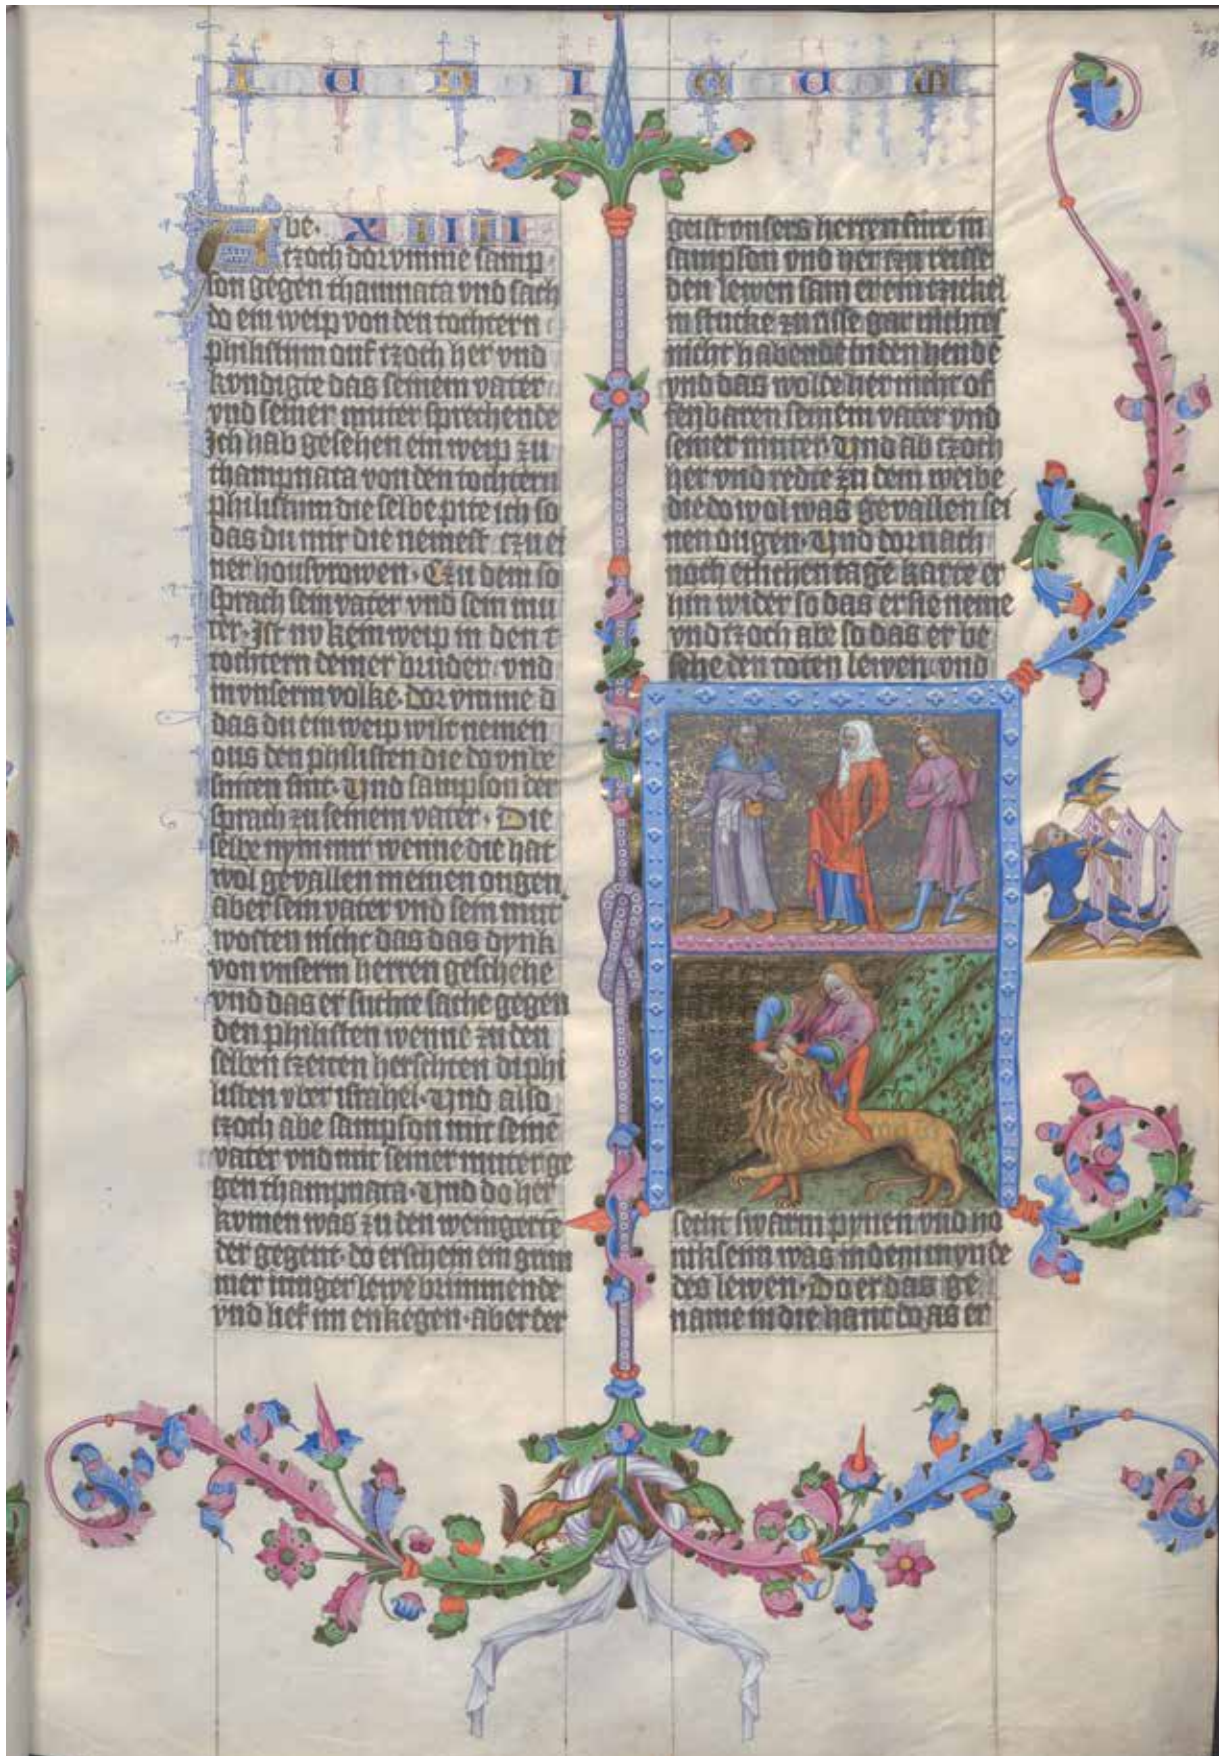 IUDICUM
Abe· XIIII
tzoch dorvmme samp
son gegen thamnata vnd sach
do ein weip von den tochtern
philistim ouf tzoch her vnd
kvndigte das seinem vater
vnd seiner muter sprechende
Ich hab gesehen ein weip zu
thampnata von den tochtern
philistim die selbe pite ich so
das du mir die nemest tzu ei
ner housvrowen· Czu dem so
sprach sein vater vnd sein mu
ter· Ist nv kein weip in den t
tochtern deiner bruder vnd
in vnserm volke· dorvmme d
das du ein weip wilt nemen
ous den philisten die do vnbe
sniten sint· Vnd sampson der
sprach zu seinem vater· Die
selbe nym mir wenne die hat
wol gevallen meinen ougen
aber sein vater vnd sein mut
wosten nicht das das dynk
von vnserm herren geschehe
vnd das er suchte sache gegen
den philisten wenne zu den
selben tzeiten herschten di phi
listen vber israhel· Vnd also
tzoch abe sampson mit seinē
vater vnd mit seiner muter ge
gen thampnata· Vnd do her
kvmen was zu den weingerte
der gegent· do erschein ein grim
mer iunger lewe brimmende
vnd lief im enkegen· aber der
geist vnsers herren fure in
sampson vnd her tzu risse
den lewen sam er ein tzickel
in stucke zu risse gar nichtes
nicht habende in den hende
vnd das wolde her nicht of
fenbaren seinem vater vnd
seiner muter· Vnd ab tzoch
her vnd redte zu dem weibe
die do wol was gevallen sei
nen ougen· Vnd dornach
noch etlichen tagē karte er
hin wider so das er sie neme
vnd tzoch abe so das er be
sehe den toten lewen vnd
secht swarm pynen vnd ho
niksein was in dem mvnde
des lewen· Do er das ge
name in die hant do as er